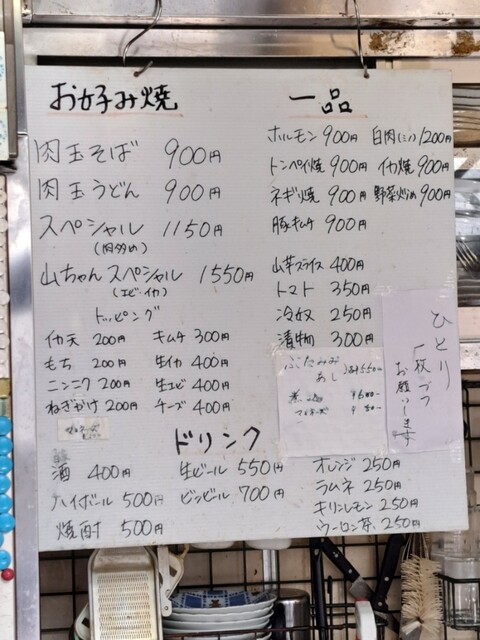 お好み焼
肉玉そば 900円
肉玉うどん 900円
スペシャル 1150円
(肉多め)
山ちゃんスペシャル 1550円
(エビ・イカ)
トッピング
イカ天 200円 キムチ 300円
もち 200円 生イカ 400円
ニンニク 200円 生エビ 400円
ねぎかけ 200円 チーズ 400円
一品
ホルモン 900円 白肉(ミノ) 1200円
トンペイ焼 900円 イカ焼 900円
ネギ焼 900円 野菜炒め 900円
豚キムチ 900円
山芋スライス 400円
トマト 350円
冷奴 250円
漬物 300円
ひとり
一枚づつ
お願いします
ドリンク
酒 400円 生ビール 550円 オレンジ 250円
ハイボール 500円 ビンビール 700円 ラムネ 250円
焼酎 500円 キリンレモン 250円
ウーロン茶 250円